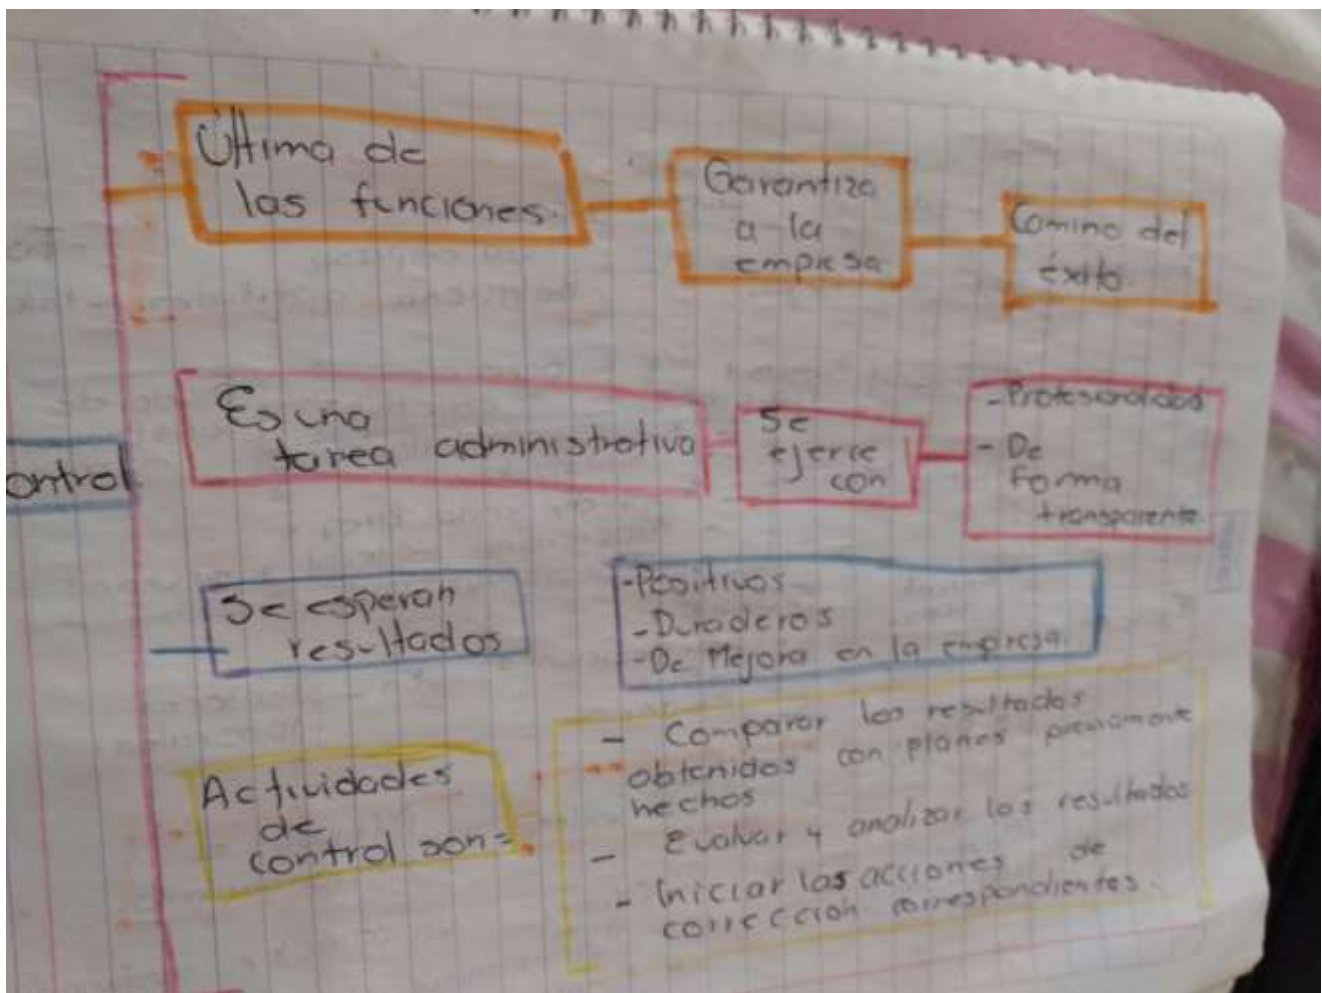 Última de
las funciones.
Garantiza
a la
empresa
Camino del
éxito.
Es una
tarea administrativa
Se
ejerce
con
- Profesionalidad
- De
forma
transparente.
ontrol
Se esperan
resultados
- Positivos
- Duraderos
- De Mejora en la empresa.
Actividades
de
control son=
- Comparar los resultados
obtenidos con planes previamente
hechos
- Evaluar y analizar los resultados
- Iniciar las acciones de
corrección correspondientes.